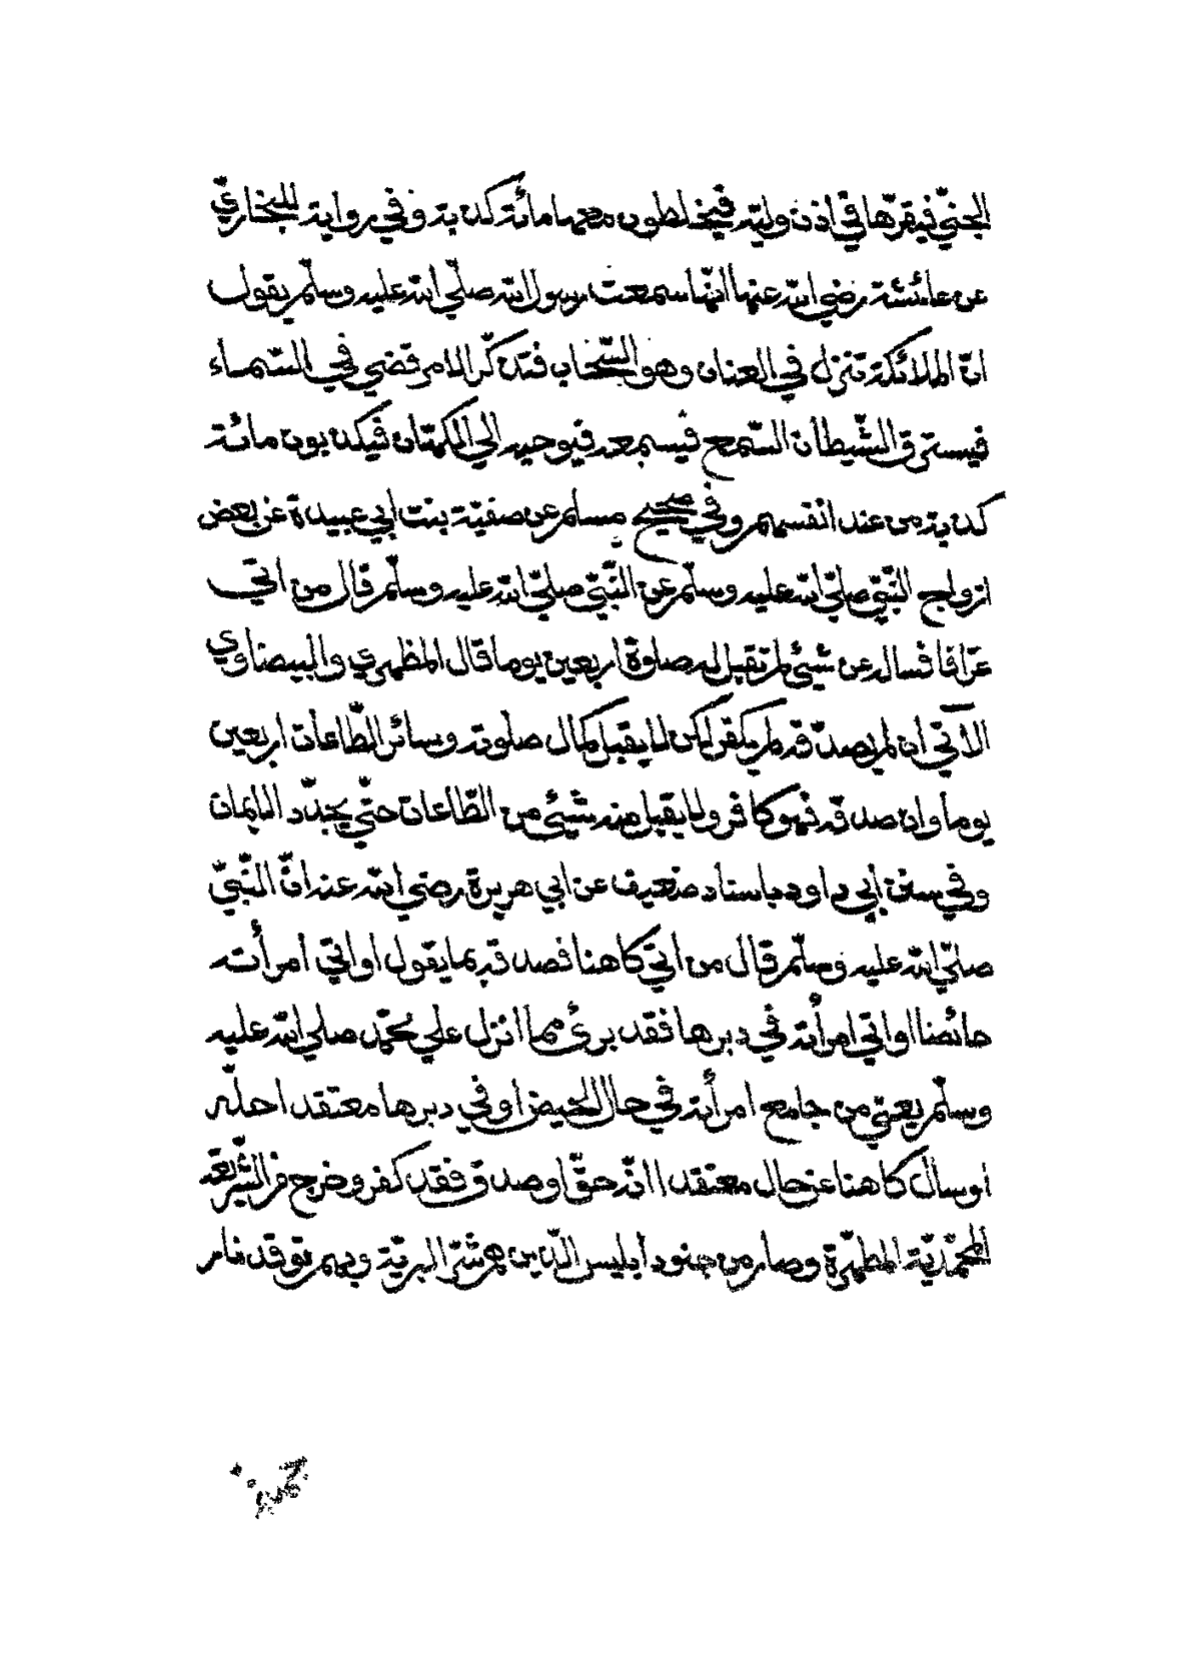 الجنّيّ فيقرّها في اذن وليّه فيخلطون معها مائة كذبة وفي رواية للبخاريّ
عن عائشة رضي الله عنها انّها سمعت رسول الله صلّي الله عليه وسلّم يقول
انّ الملائكة تنزل في العنان وهو السّحاب فتذكّر الامر قضي في السّماء
فيسترق الشّيطان السّمع فيسمعه فيوحيه الي الكهّان فيكذبون مائة
كذبة من عند انفسهم وفي صحيح مسلم عن صفيّة بنت ابي عبيدة عن بعض
ازواج النّبيّ صلّي الله عليه وسلّم عن النّبيّ صلّي الله عليه وسلّم قال من اتي
عرّافا فسأله عن شيئ لم تقبل له صلوة اربعين يوما قال المظهري والبيضاوي
الآتي ان لم يصدّقه لم يكفر لكن لا يقبل كمال صلوته وسائر الطّاعات اربعين
يوما وان صدقه فهو كافر ولا يقبل منه شيئ من الطّاعات حتّي يجدّد الايمان
وفي سنن أبي داود باسناد ضعيف عن ابي هريرة رضي الله عنه انّ النّبيّ
صلّي الله عليه وسلّم قال من أتي كاهنا فصدقه بما يقول او اتي امرأته
حائضا او اتي امرأته في دبرها فقد برئ مما انزل علي محمّد صلي الله عليه
وسلّم يعني من جامع امرأته في حال الحيض او في دبرها معتقد احلّه
أو سأل كاهنا عن حال معتقدا انّه حقّ او صدق فقد كفر وخرج من الشّريعة
المحمّديّة المطهّرة وصار من جنود أبليس الّذين هم شرّ البريّة وبهم توقد نار